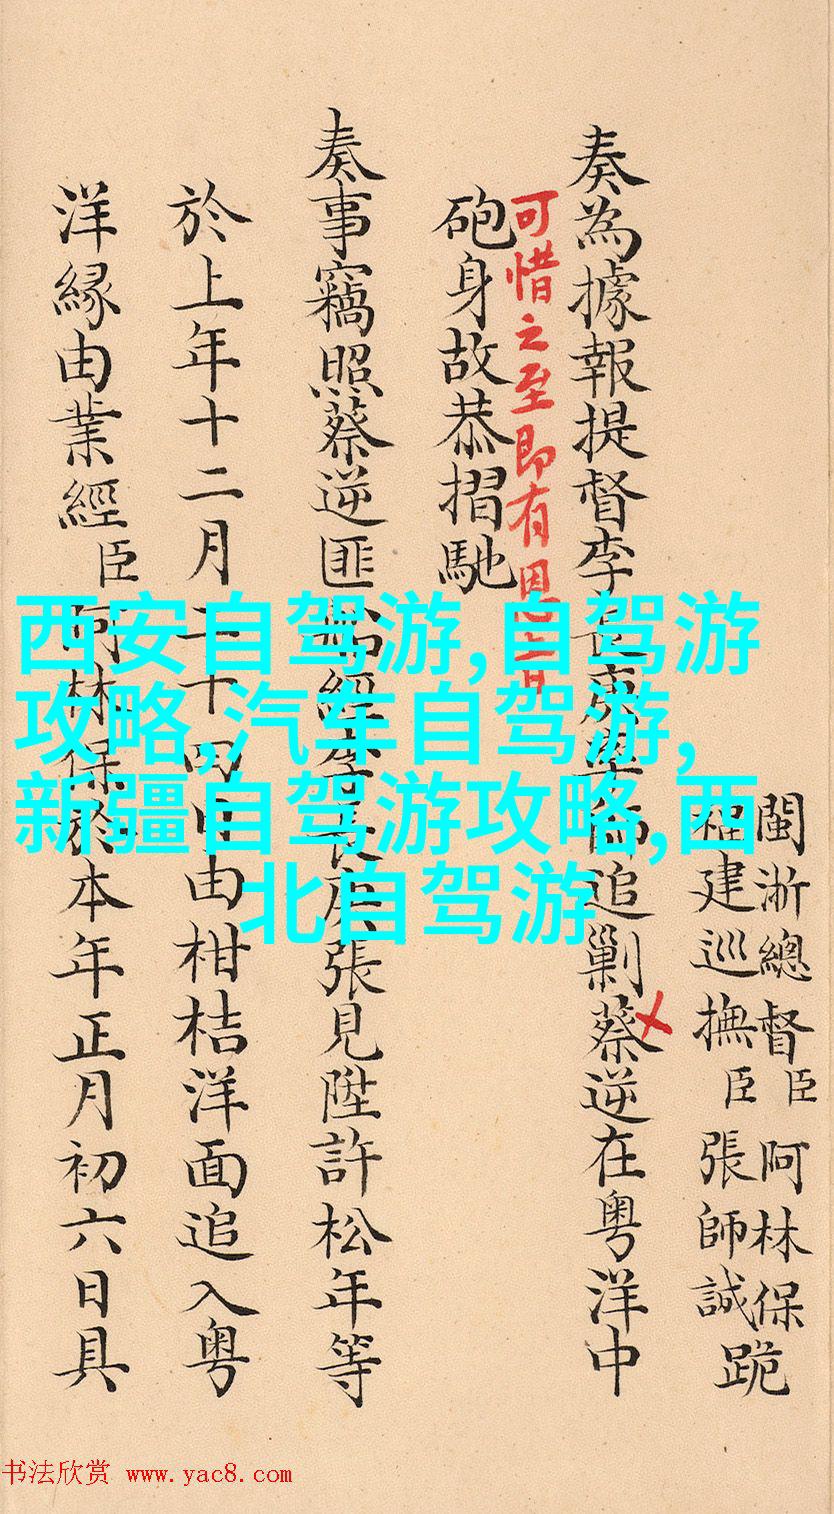 閩浙總督臣阿林保跪
福建巡撫臣張師誠
奏為據報提督李長庚師追剿蔡逆在粤洋中
可惜之至即有恩旨
砲身故恭摺馳
奏事竊照蔡逆匪船經李長庚張見陞許松年等
於上年十二月二十四日由柑桔洋面追入粤
洋緣由業經臣阿林保於本年正月初六日具
西安自驾游,自驾游
攻略,汽车自驾游,
新疆自驾游攻略,西
北自驾游
书法欣赏 www.yac8.com